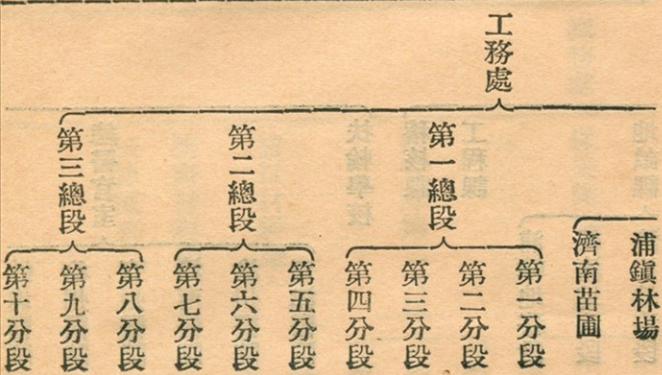 工務處
浦鎮林場
濟南苗圃
第一總段
第一分段
第二分段
第三分段
第四分段
第二總段
第五分段
第六分段
第七分段
第三總段
第八分段
第九分段
第十分段